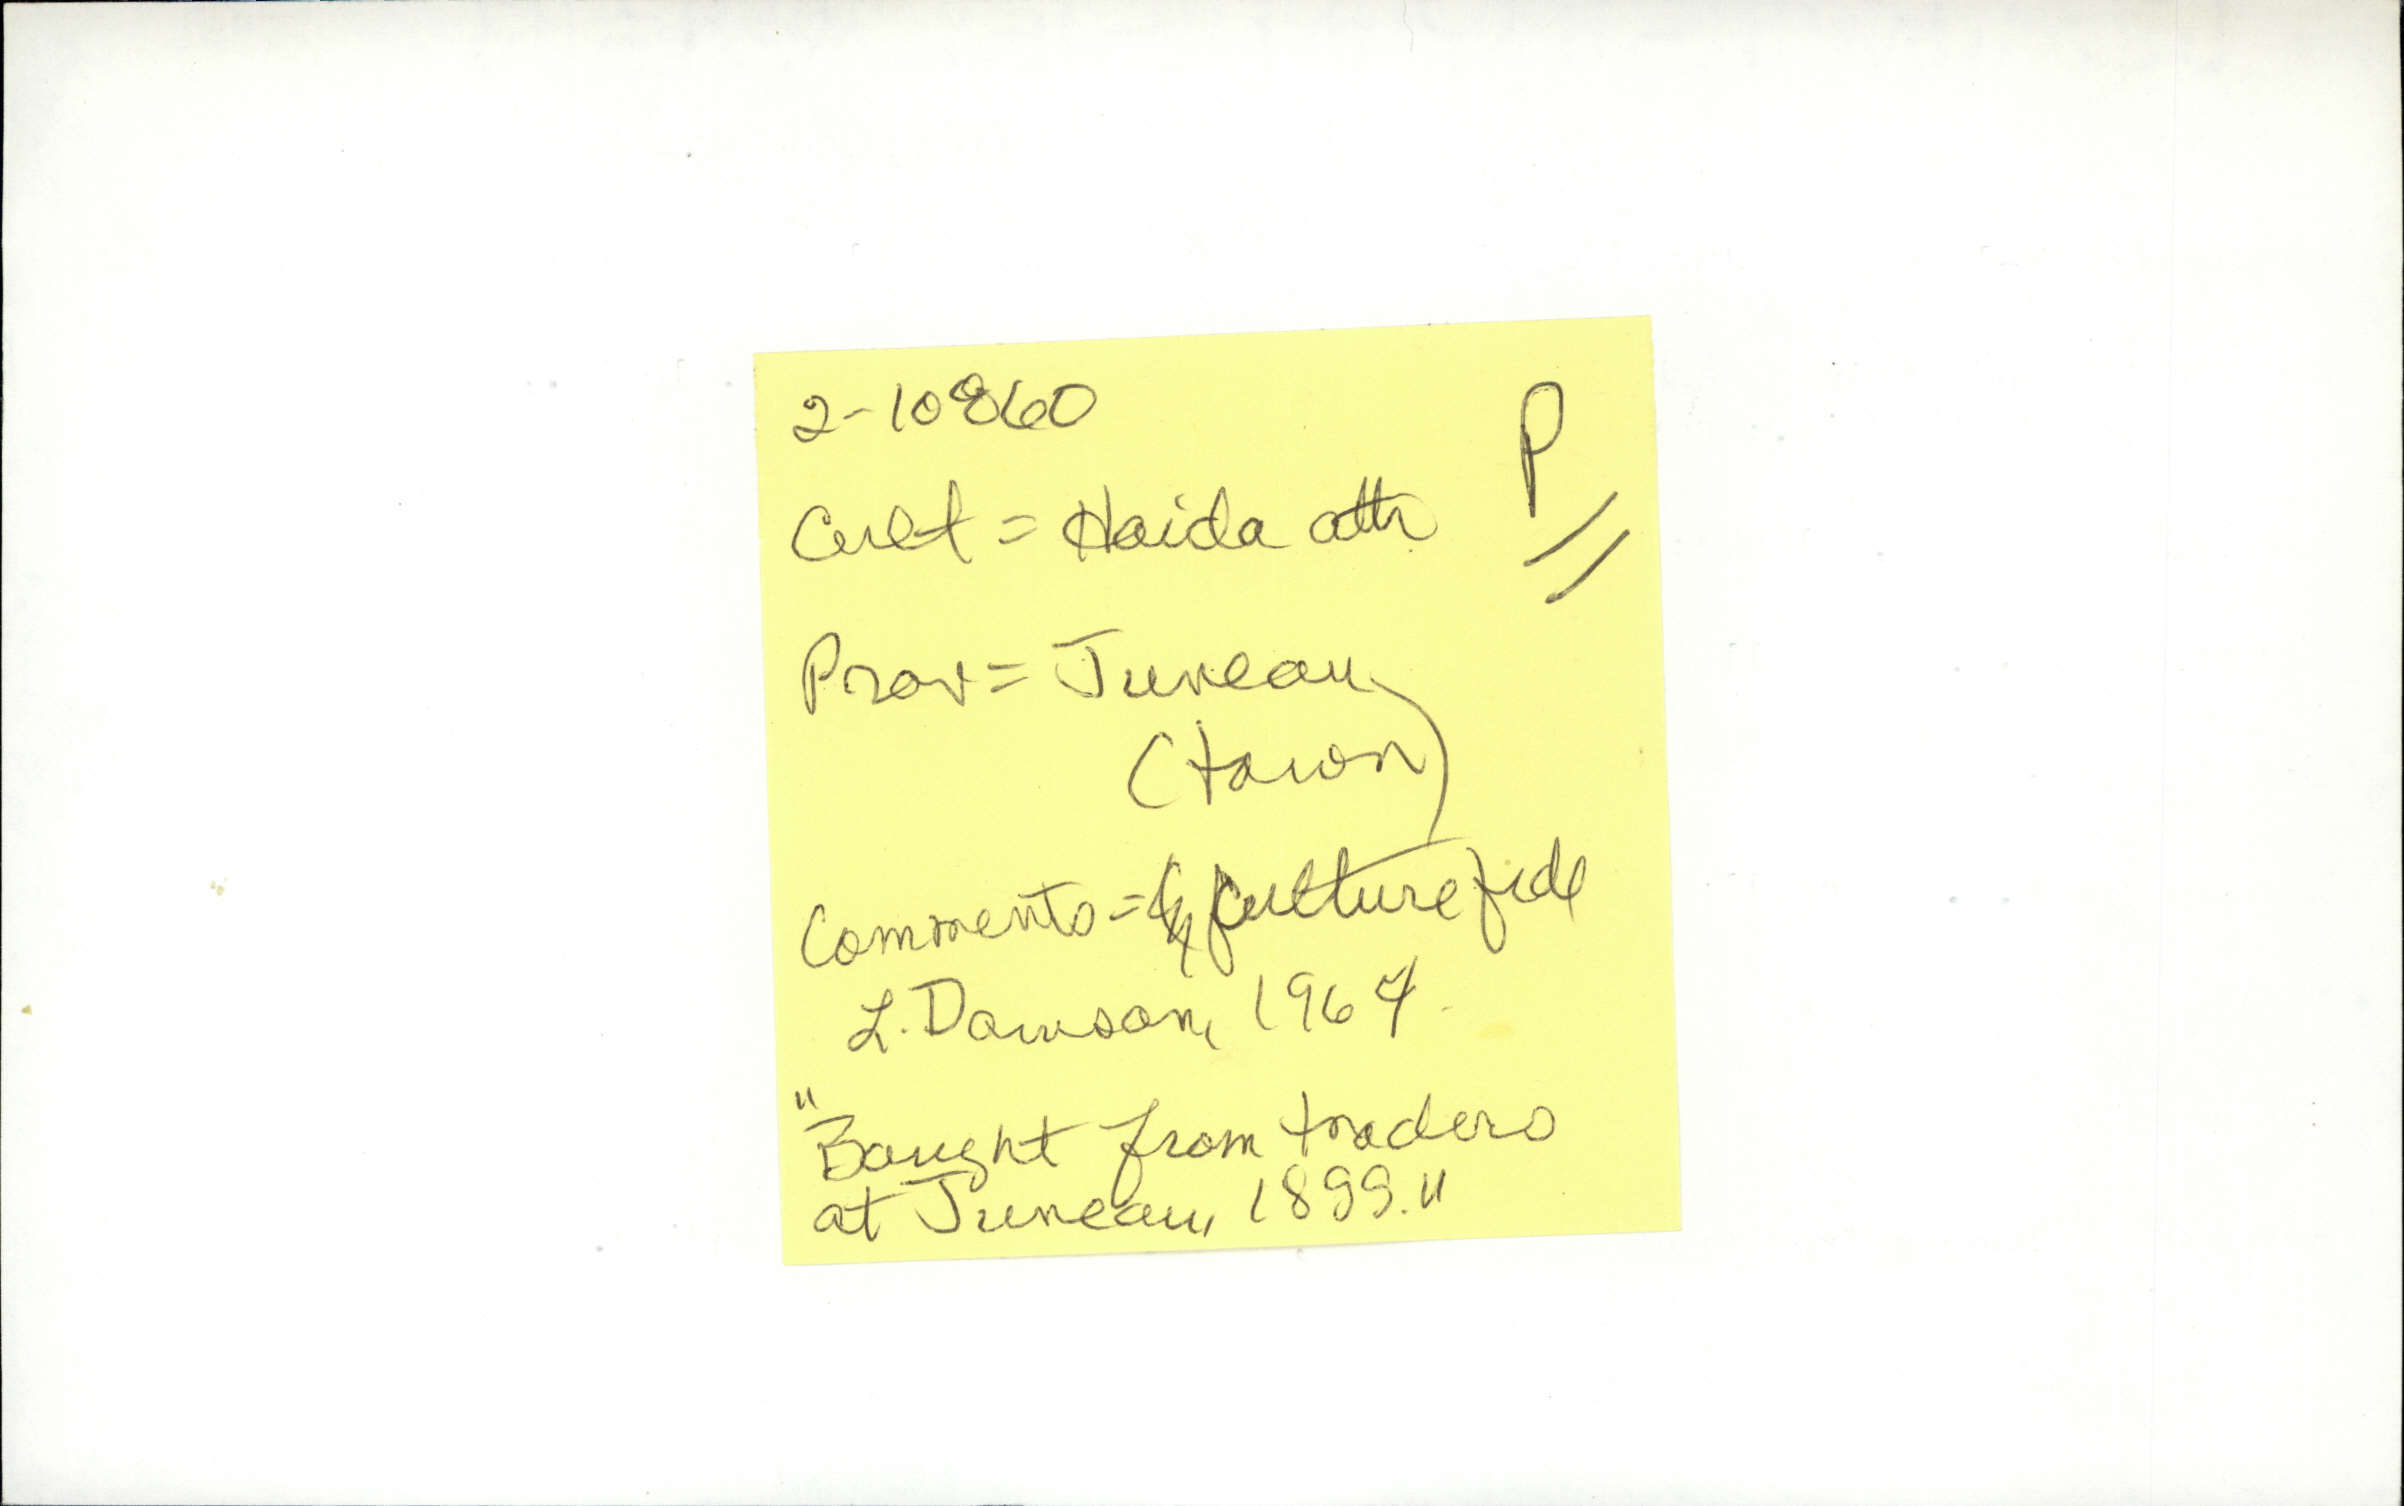 2-10860
P
Cult = Haida attr
Prov = Juneau
(town)
Comments = Culture fide
L. Dawson, 1964.
"Bought from traders
at Juneau, 1899."